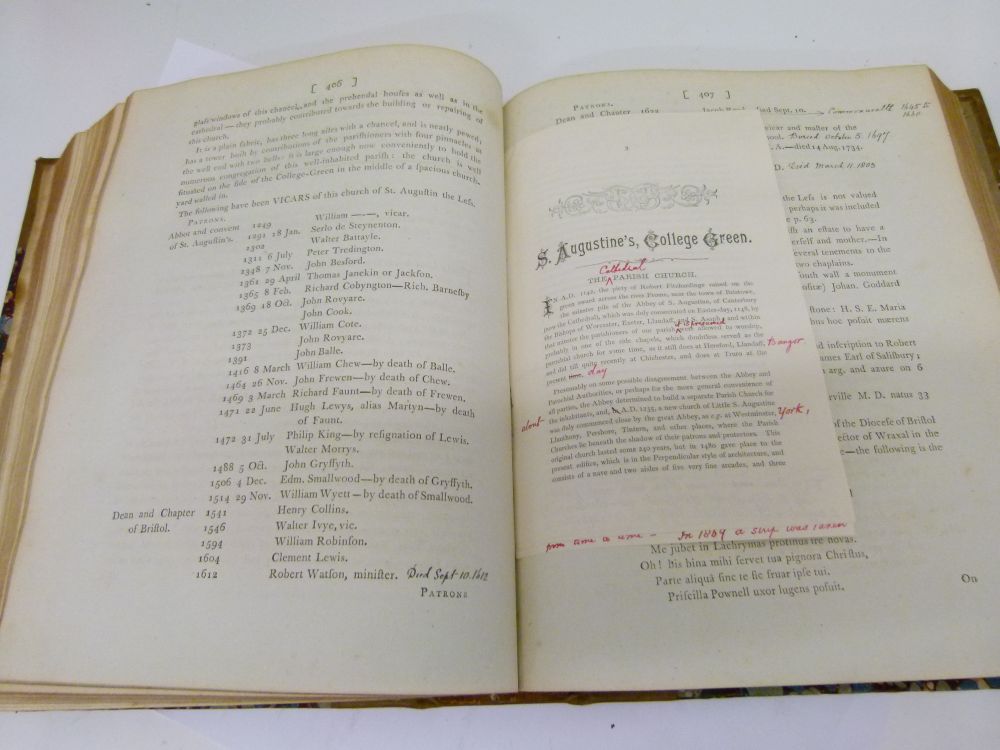 [ 406 ]
glaſs windows of this chancel, and the prebendal houſes as well as in the
cathedral — they probably contributed towards the building or repairing of
this church.
It is a plain fabric, has three long ailes with a chancel, and is neatly pewed,
has a tower built by contributions of the pariſhioners with four pinnacles at
the weſt end with two bells: it is large enough now conveniently to hold the
numerous congregation of this well-inhabited pariſh: the church is well
ſituated on the ſide of the College-Green in the middle of a ſpacious church-
yard walled in.
The following have been VICARS of this church of St. Auguſtin the Leſs.
PATRONS.
Abbot and convent 1249 William —-—, vicar.
of St. Auguſtin's. 1291 18 Jan. Serlo de Steynenton.
1302 Walter Battayle.
1311 6 July Peter Tredington.
1348 7 Nov. John Besford.
1361 29 April Thomas Janekin or Jackſon.
1365 8 Feb. Richard Cobyngton—Rich. Barneſby
1369 18 Oct. John Rovyare.
John Cook.
1372 25 Dec. William Cote.
1373 John Rovyare.
1391 John Balle.
1416 8 March William Chew—by death of Balle.
1464 26 Nov. John Frewen—by death of Chew.
1469 3 March Richard Faunt—by death of Frewen.
1471 22 June Hugh Lewys, alias Martyn—by death
of Faunt.
1472 31 July Philip King—by reſignation of Lewis.
Walter Morrys.
1488 5 Oct. John Gryffyth.
1506 4 Dec. Edm. Smallwood—by death of Gryffyth.
1514 29 Nov. William Wyett—by death of Smallwood.
Dean and Chapter 1541 Henry Collins.
of Briſtol. 1546 Walter Ivye, vic.
1594 William Robinſon.
1604 Clement Lewis.
1612 Robert Watſon, miniſter. Died Sept 10. 1612
PATRONS
[ 407 ]
PATRONS.
Dean and Chapter 1622 died Sept. 10. Commonwealth 1645 to
1660
vicar and maſter of the
ool. Buried October 5. 1697
A.—died 14 Aug. 1734.
D. Died March 11. 1803
the Leſs is not valued
perhaps it was included
e p. 63.
ſſh an eſtate to have a
erſelf and mother.—In
ſeveral tenements to the
two chaplains.
outh wall a monument
oſitæ) Johan. Goddard
ſtone: H. S. E. Maria
bus hoc poſuit mærens
nd inſcription to Robert
ames Earl of Saliſbury;
arg. and azure on 6
erville M. D. natus 33
of the Dioceſe of Briſtol
ector of Wraxal in the
e—the following is the
3
S. Augustine's, College Green.
Cathedral
THE ^ PARISH CHURCH.
IN A.D. 1142, the piety of Robert Fitzhardinge raised on the
green sward across the river Frome, near the town of Bristowe,
the minster pile of the Abbey of S. Augustine, of Canterbury
(now the Cathedral), which was duly consecrated on Easter-day, 1148, by
the Bishops of Worcester, Exeter, Llandaff, and S. Asaph; and within
that minster the parishioners of our parish were allowed to worship,
probably in one of the side chapels, which doubtless served as the
parochial church for some time, as it still does at Hereford, Llandaff, Bangor
and did till quite recently at Chichester, and does at Truro at the
present time. day
Presumably on some possible disagreement between the Abbey and
Parochial Authorities, or perhaps for the more general convenience of
all parties, the Abbey determined to build a separate Parish Church for
about the inhabitants, and, A.D. 1235, a new church of Little S. Augustine
was duly commenced close by the great Abbey, as e.g. at Westminster, York,
Llanthony, Pershore, Tintern, and other places, where the Parish
Churches lie beneath the shadow of their patrons and protectors. This
original church lasted some 240 years, but in 1480 gave place to the
present edifice, which is in the Perpendicular style of architecture, and
consists of a nave and two aisles of five very fine arcades, and three
from time to time — In 1849 a strip was taken
Me jubet in Lachrymas protinus ire novas.
Oh! bis bina mihi ſervet tua pignora Chriſtus,
Parte aliquâ ſinc te ſic fruar ipſe tui.
Priſcilla Pownell uxor lugens poſuit.
On